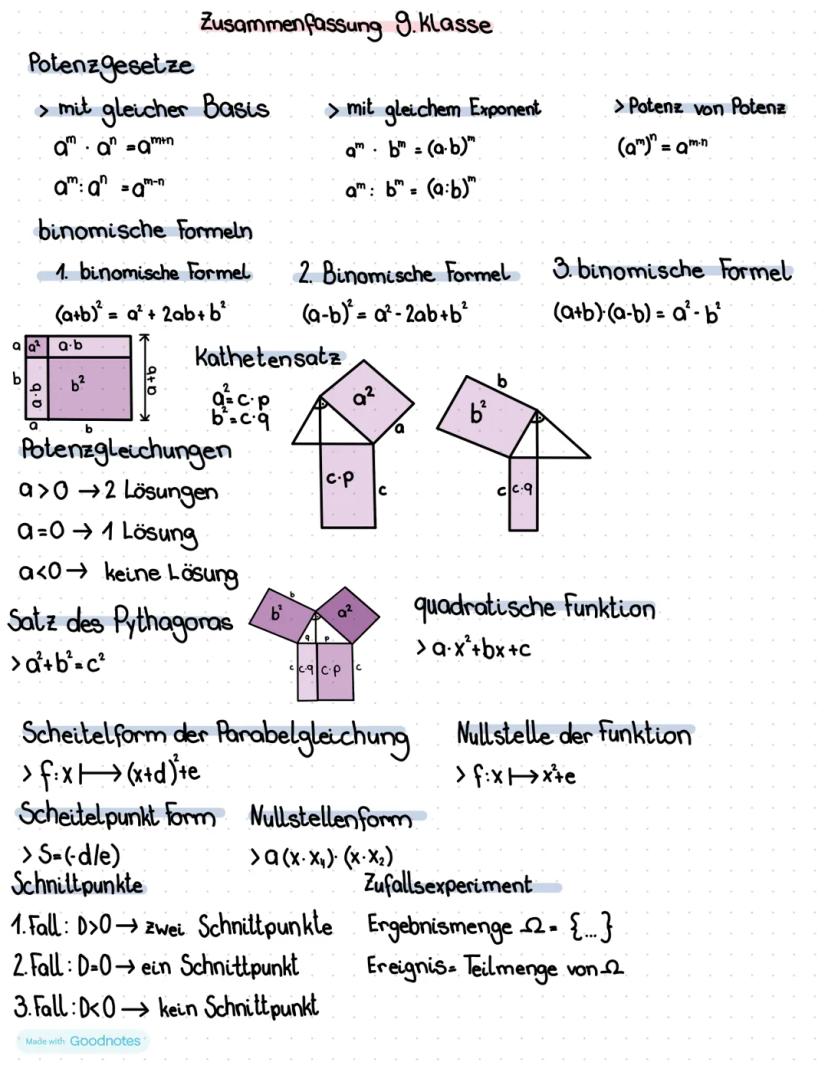 Zusammenfassung 9. Klasse
Potenzgesetze
> mit gleicher Basis
aᵐ · aⁿ = aᵐ⁺ⁿ
aᵐ : aⁿ = aᵐ⁻ⁿ
> mit gleichem Exponent
aᵐ · bᵐ = (a·b)ᵐ
aᵐ : bᵐ = (a:b)ᵐ
> Potenz von Potenz
(aᵐ)ⁿ = aᵐ·ⁿ
binomische Formeln
1. binomische Formel
(a+b)² = a² + 2ab + b²
2. Binomische Formel
(a-b)² = a² - 2ab + b²
3. binomische Formel
(a+b)·(a-b) = a² - b²
a a² a·b
b a·b b² a+b
a b
Kathetensatz
a² = c·p
b² = c·q
a²
a
c·p c
b
b²
c c·q
Potenzgleichungen
a>0 → 2 Lösungen
a=0 → 1 Lösung
a<0 → keine Lösung
Satz des Pythagoras
> a²+b²=c²
b
b² a²
q p
c c·q c·p c
quadratische Funktion
> a·x²+bx+c
Scheitelform der Parabelgleichung
> f:x ↦ (x+d)²+e
Nullstelle der Funktion
> f:x ↦ x²+e
Scheitelpunkt Form
> S=(-d/e)
Nullstellenform
> a(x·x₁)·(x·x₂)
Schnittpunkte
1. Fall: D>0 → zwei Schnittpunkte
2. Fall: D=0 → ein Schnittpunkt
3. Fall: D<0 → kein Schnittpunkt
Zufallsexperiment
Ergebnismenge Ω = {...}
Ereignis = Teilmenge von Ω
Made with Goodnotes